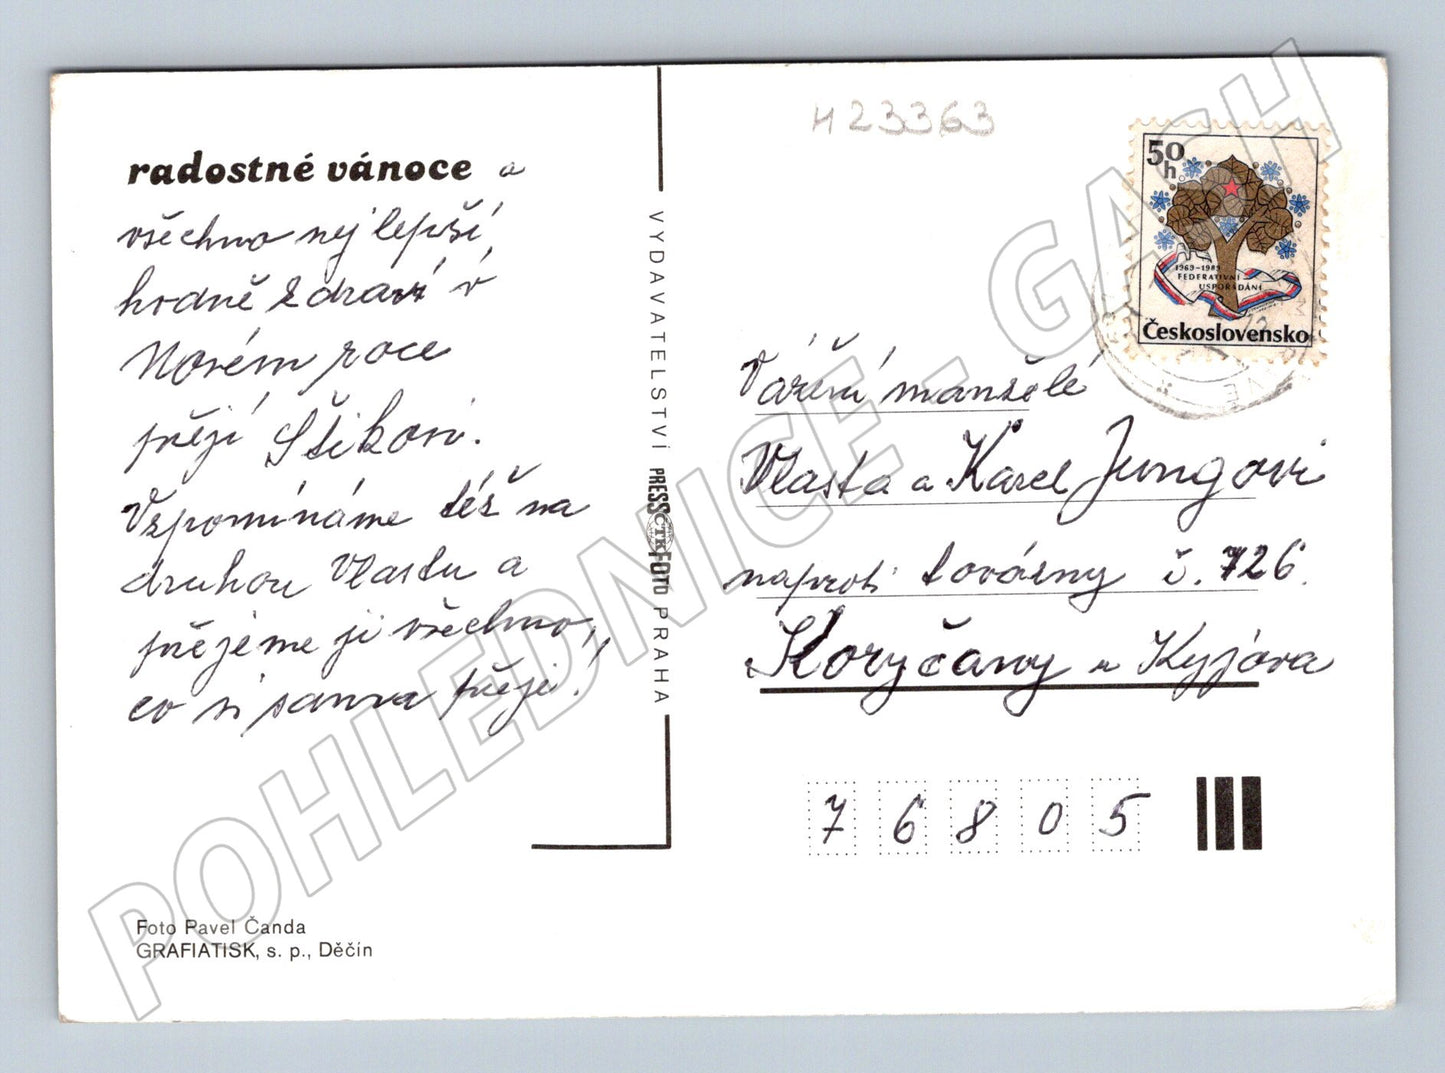 H23363
radostné vánoce a
všechno nejlepší,
hodně zdraví v
Novém roce
přejí Štikovi.
Vzpomínáme též na
druhou Vlastu a
přejeme jí všechno,
co si sama přeje!
Foto Pavel Čanda
GRAFIATISK, s. p., Děčín
VYDAVATELSTVÍ PRESSFOTO PRAHA
ČTK
50 h
1969-1989
FEDERATIVNÍ
USPOŘÁDÁNÍ
Československo
Vážení manželé
Vlasta a Karel Jungovi
naproti továrny č. 726.
Koryčany u Kyjova
76805
POHLEDNICE - GASH